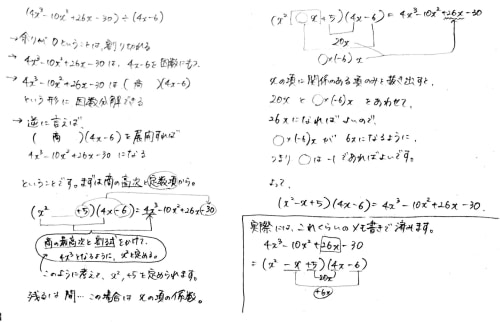 (4x³-10x²+26x-30)÷(4x-6)
→ 余りが0ということは、割り切れる
→ 4x³-10x²+26x-30は、4x-6を因数にもつ
→ 4x³-10x²+26x-30は(商)(4x-6)
という形に因数分解できる
→ 逆に言えば、
(商)(4x-6)を展開すれば
4x³-10x²+26x-30になる
ということです。まずは商の最高次と定数項から。
(x² +5)(4x-6)=4x³-10x²+26x-30
商の最高次と割る式をかけて、
4x³となるように、x²を定める。
このように考えて、x²,+5を定められます。
残るは間…この場合はxの項の係数。
(x² ○x+5)(4x-6)=4x³-10x²+26x-30
20x
○×(-6)x
xの項に関係のある項のみを抜き出すと、
20xと○×(-6)xをあわせて、
26xになればよいので、
○×(-6)xが6xになるように、
つまり○は-1であればよいです。
よって、
(x²-x+5)(4x-6)=4x³-10x²+26x-30.
実際には、これぐらいのメモ書きで済みます。
4x³-10x²+26x-30
=(x²-x+5)(4x-6)
20x
+6x